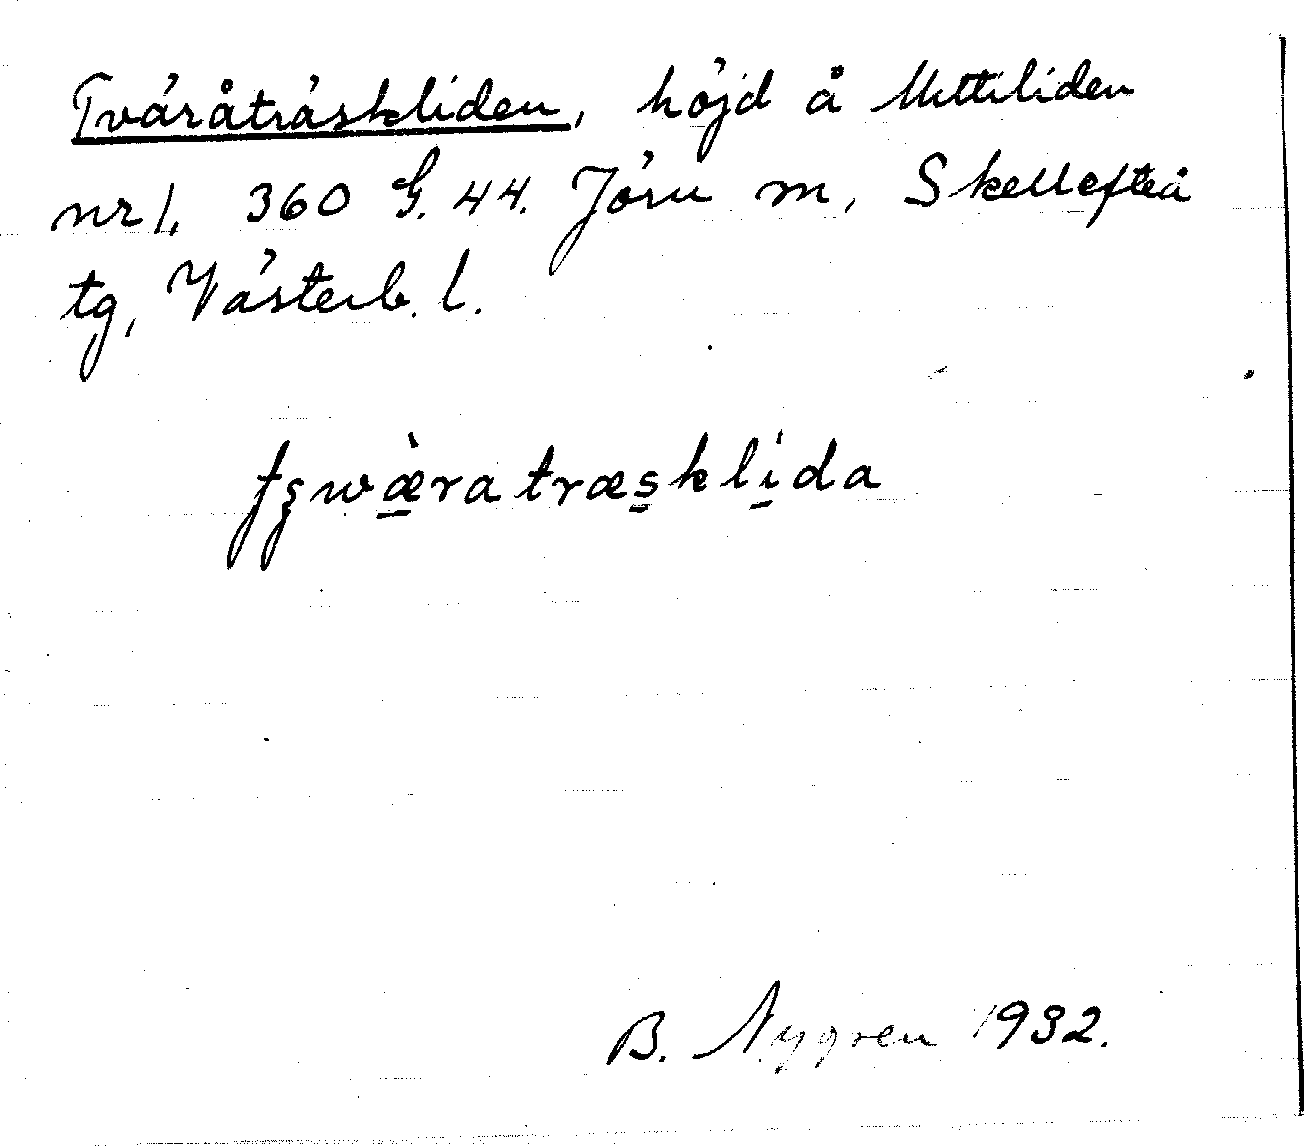 Tväråträskliden, höjd å Mettiliden
nr 1. 360 G. 44. Jörn m, Skellefteå
tg, Västerb. l.
wæratræsklida
B. Nygren 1932.